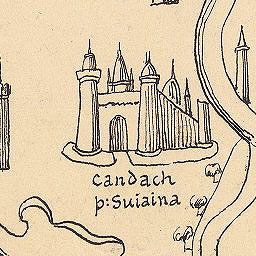 Candach
p:Suiaina